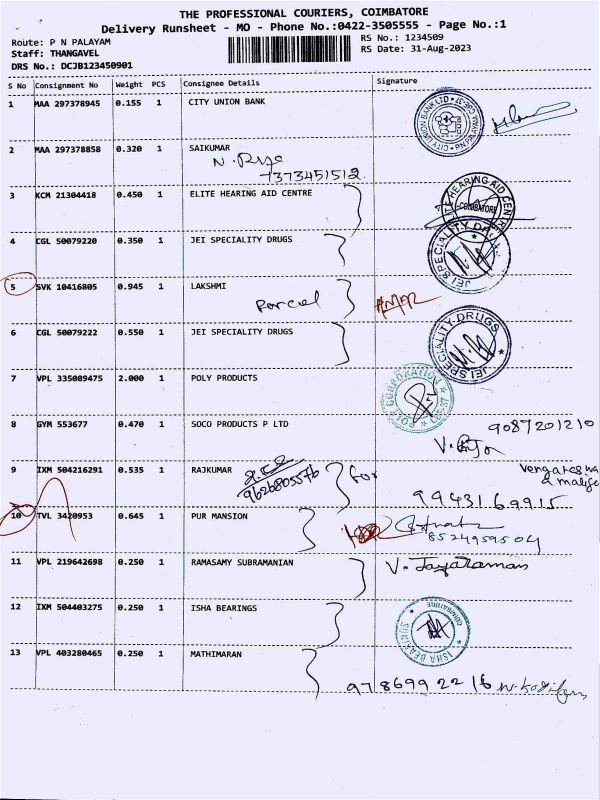 THE PROFESSIONAL COURIERS, COIMBATORE
Delivery Runsheet - MO - Phone No.:0422-3505555 - Page No.:1
Route: P N PALAYAM
Staff: THANGAVEL
DRS No.: DCJB123450901
RS No.: 1234509
RS Date: 31-Aug-2023
S No Consignment No Weight PCS Consignee Details Signature
1 MAA 297378945 0.155 1 CITY UNION BANK
2 MAA 297378858 0.320 1 SAIKUMAR
7373451512
3 KCM 21304418 0.450 1 ELITE HEARING AID CENTRE
HEARING AID CENTRE
COIMBATORE
4 CGL 50079220 0.350 1 JEI SPECIALITY DRUGS
JEI SPECIALITY DRUGS
5 SVK 10416805 0.945 1 LAKSHMI
Parcel
6 CGL 50079222 0.550 1 JEI SPECIALITY DRUGS
JEI SPECIALITY DRUGS
7 VPL 335009475 2.000 1 POLY PRODUCTS
CORPORATION
8 GYM 553677 0.470 1 SOCO PRODUCTS P LTD
9087201210
9 IXM 504216291 0.535 1 RAJKUMAR
9626805576
for
9943169915
10 TVL 3420953 0.645 1 PUR MANSION
8524959504
11 VPL 219642698 0.250 1 RAMASAMY SUBRAMANIAN
V. Jayaraman
12 IXM 504403275 0.250 1 ISHA BEARINGS
COIMBATORE
13 VPL 403280465 0.250 1 MATHIMARAN
9786992216